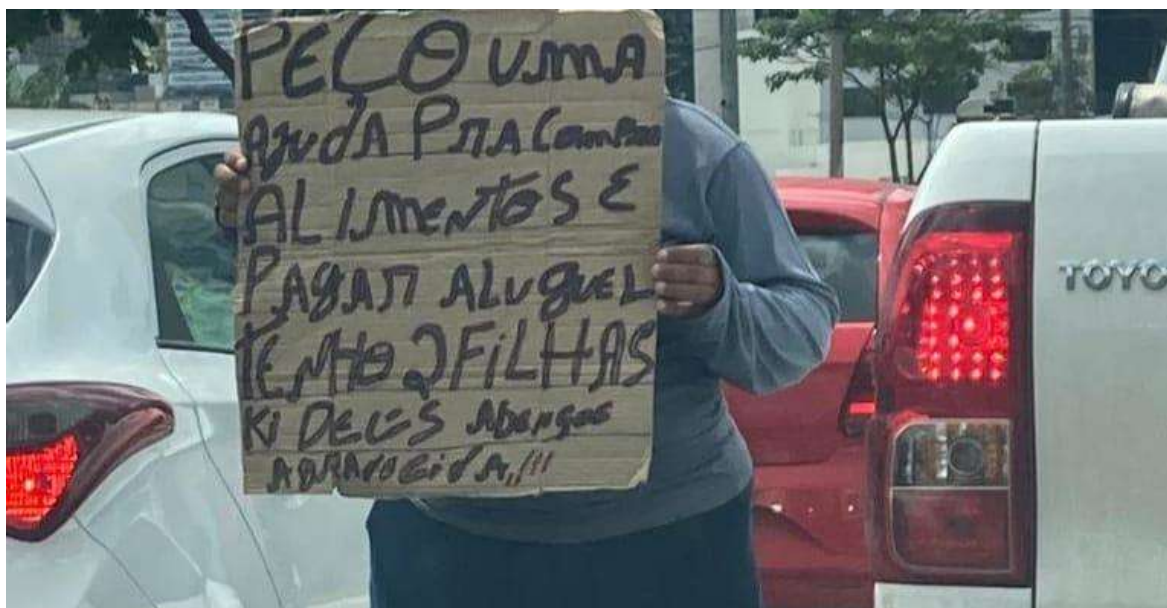 PEÇO UMA
AJUDA PRA COMPRAR
ALIMENTOS E
PAGAR ALUGUEL
TENHO 2 FILHAS
KI DEUS ABENÇOE
AGRADECIDA,,!!!
TOYO